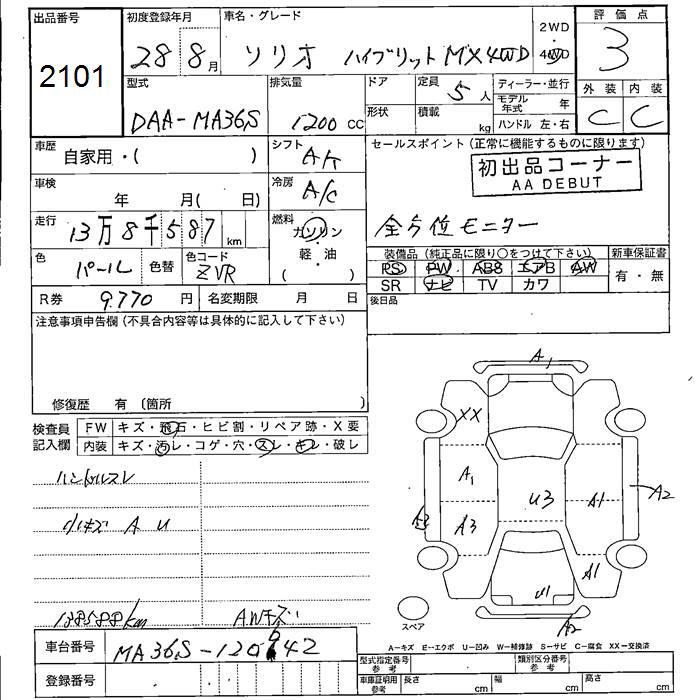 出品番号
2101
初度登録年月
28 8月
車名・グレード
ソリオ ハイブリット MX 4WD
2WD
・
4WD
評価点
3
外装 内装
C C
型式
DAA-MA36S
排気量
1200 CC
ドア
形状
定員
5人
積載
kg
ディーラー・並行
モデル年式 年
ハンドル 左・右
車歴
自家用・( )
シフト
AT
セールスポイント (正常に機能するものに限ります)
初出品コーナー
AA DEBUT
車検
年 月( 日)
冷房
A/C
走行
13万8千587 km
燃料
ガソリン
・
軽・油
( )
全方位モニター
色
パール
色替
色コード
ZVR
装備品 (純正品に限り○をつけて下さい)
PS PW ABS エアB AW
SR ナビ TV カワ
新車保証書
有・無
R券 9.770 円
名変期限 月 日
後日品
注意事項申告欄 (不具合内容等は具体的に記入して下さい)
修復歴 有 (箇所 )
検査員記入欄
FW キズ・飛石・ヒビ割・リペア跡・X要
内装 キズ・汚レ・コゲ・穴・スレ・キレ・破レ
ハンドルスレ
小キズ A U
138588km
AWキズ
A1
XX
A1
A3
A2
U3
A1
A2
A1
U1
A2
スペア
A-キズ E-エクボ U-凹み W-補修跡 S-サビ C-腐食 XX-交換済
車台番号 MA36S-120642
登録番号
型式指定番号 参考
類別区分番号 参考
車庫証明用 参考
長さ cm 幅 cm 高さ cm